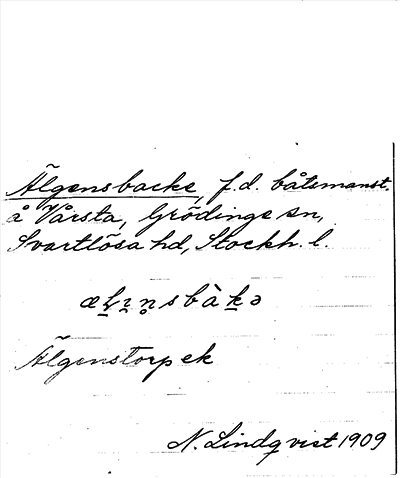 Älgensbacke, f.d. båtsmanst.
å Vårsta, Grödinge sn,
Svartlösa hd, Stockh. l.
Älgenstorp ek
N. Lindqvist 1909